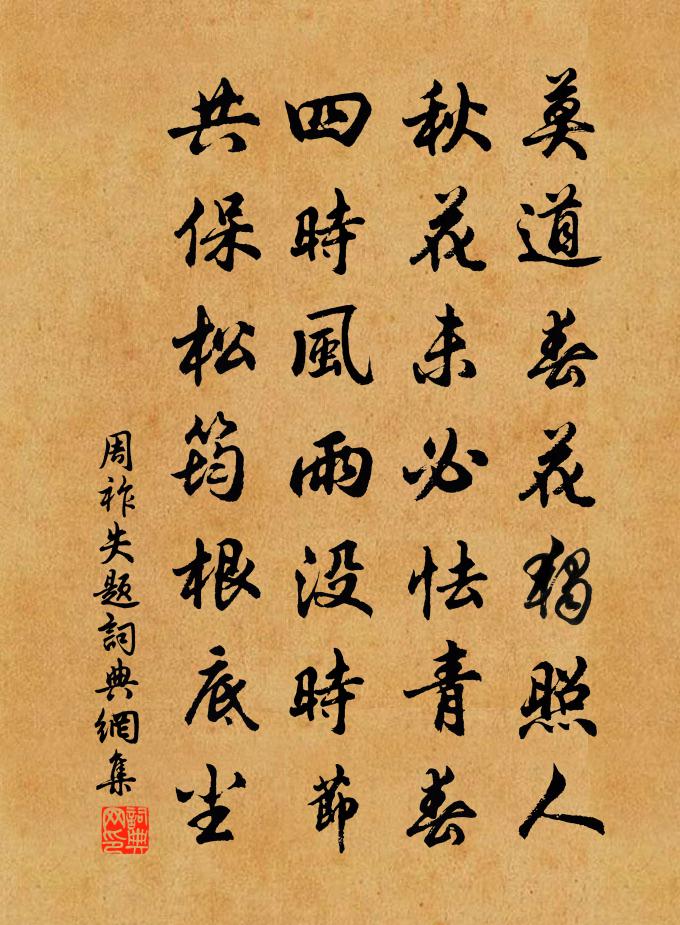 莫道春花獨照人
秋花未必怯青春
四時風雨没時節
共保松筠根底尘
周祚失题詞典網集
詞典网印